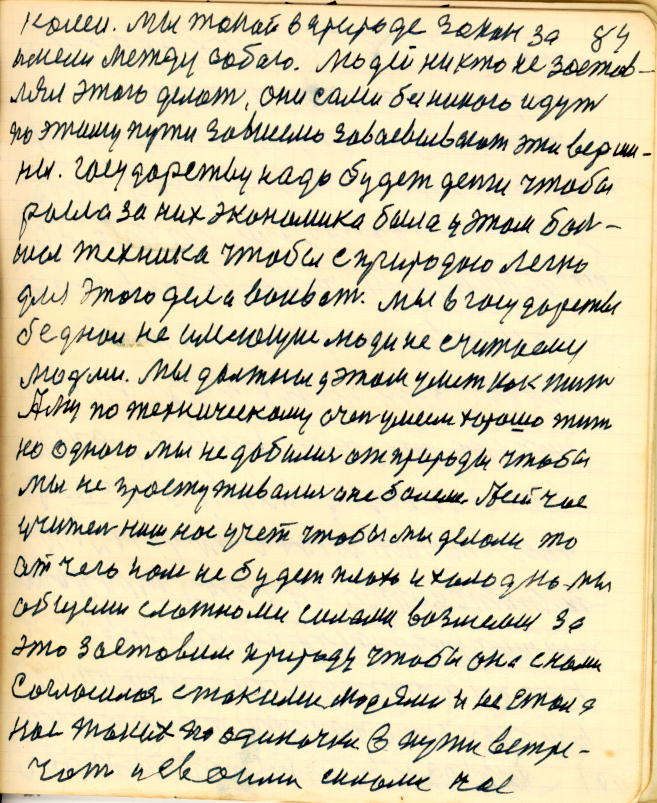 колеи. Мы такой в природе закон за 84
имели между собою. Людей никто не застав-
лял этого делать, они сами без никого идут
по этому пути зависемо завоевывают эти верши-
ны. Государству надо будет дети чтобы
росла за них экономика была у этом бол-
шая техника чтобы с природою легко
для этого дела воевать. Мы в государстве
бедной не имеющие люди не считаему
людми. Мы должны у этом умет как жит
А мы по техническому очен умеем хорошо жит
но одного мы не добилис от природы чтобы
мы не простуживалис и не болели. Сейчас
учител наш нас учет чтобы мы делали то
от чего нам не будет плохо и холодно. мы
общими сложноми силами возмемся за
это заставим природу чтобы она с нами
согласилас с такими людями и не стала
нас таких по одиночки в пути встре-
чат и своими силами нас